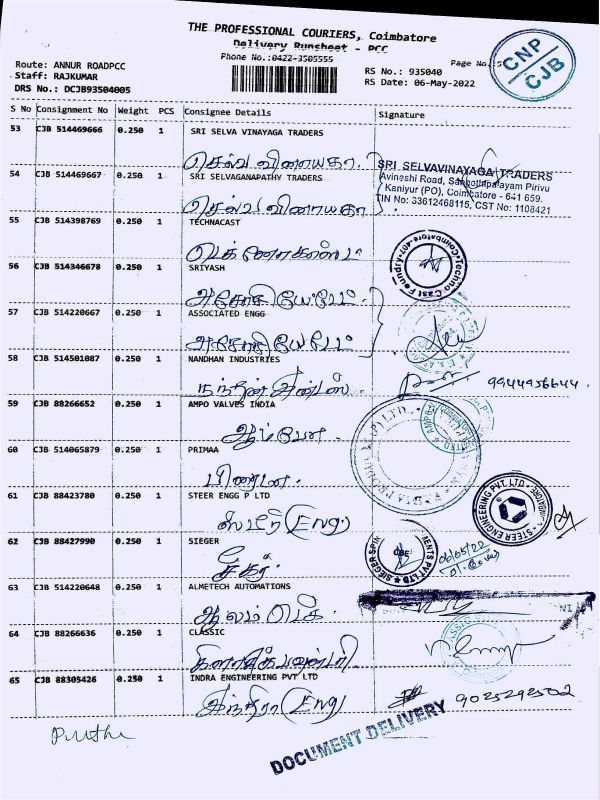 THE PROFESSIONAL COURIERS, Coimbatore
Delivery Runsheet - PCC
Phone No.:0422-3505555
Route: ANNUR ROADPCC
Staff: RAJKUMAR
DRS No.: DCJB93504005
Page No.:5
RS No.: 935040
RS Date: 06-May-2022
CNP
CJB
S No Consignment No Weight PCS Consignee Details Signature
53 CJB 514469666 0.250 1 SRI SELVA VINAYAGA TRADERS
செல்வ விநாயகா
54 CJB 514469667 0.250 1 SRI SELVAGANAPATHY TRADERS
SRI SELVAVINAYAGA TRADERS
Avinashi Road, Pirivu
Kaniyur (PO), Coimbatore - 641 659.
TIN No: 33612468115, CST No: 1108421
செல்வ விநாயகா
55 CJB 514398769 0.250 1 TECHNACAST
Techno Cast Foundry
56 CJB 514346678 0.250 1 SRIYASH
அசோசியேட்
57 CJB 514220667 0.250 1 ASSOCIATED ENGG
அசோசியேட்
58 CJB 514501087 0.250 1 NANDHAN INDUSTRIES
9944956644.
59 CJB 88266652 0.250 1 AMPO VALVES INDIA
60 CJB 514065879 0.250 1 PRIMAA
61 CJB 88423780 0.250 1 STEER ENGG P LTD
ஸ்டீர் (Eng)
STEER ENGINEERING PVT. LTD
62 CJB 88427990 0.250 1 SIEGER
சீகர்
06/05/22
63 CJB 514220648 0.250 1 ALMETECH AUTOMATIONS
64 CJB 88266636 0.250 1 CLASSIC
65 CJB 88305426 0.250 1 INDRA ENGINEERING PVT LTD
இந்திரா (Eng)
9025292502
DOCUMENT DELIVERY